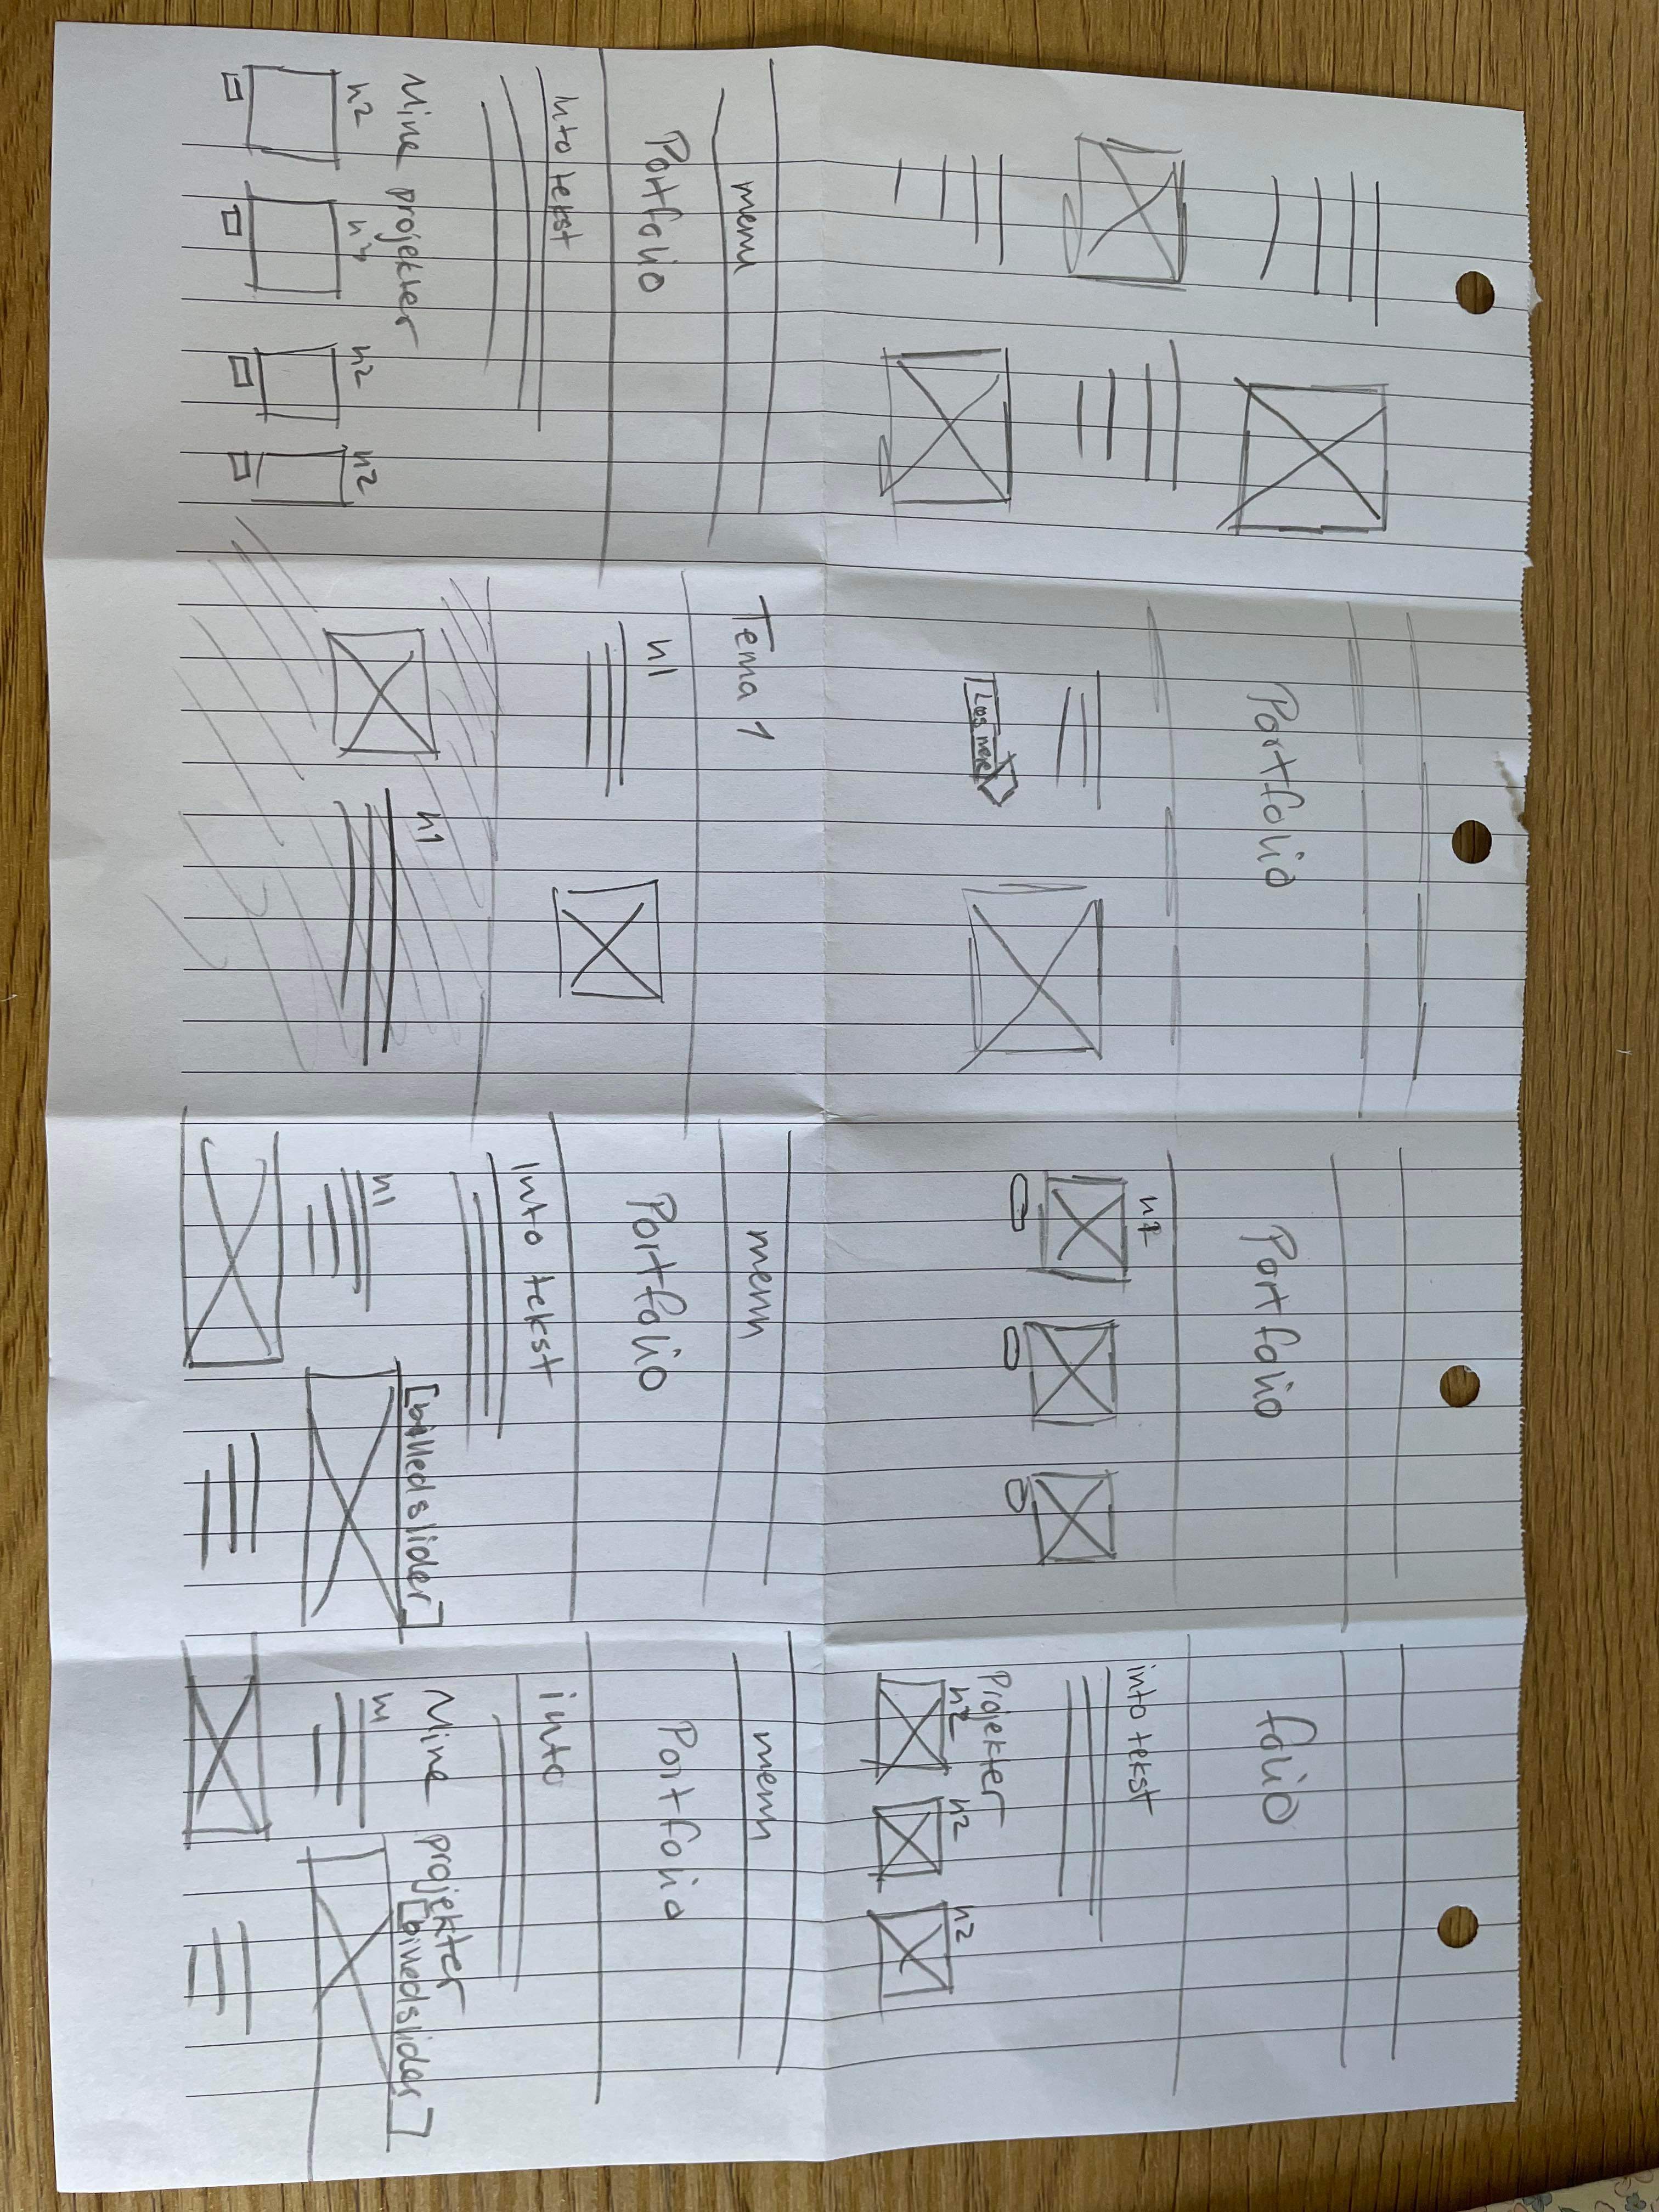 Portfolio
Læs mere
Portfolio
h2
folio
into tekst
Projekter
h2
h2
h2
menu
Portfolio
Into tekst
Mine projekter
h2
h2
h2
h2
Tema 1
h1
h1
menu
Portfolio
Into tekst
[billedslider]
h1
menu
Portfolio
into
Mine projekter
h1
[billedslider]